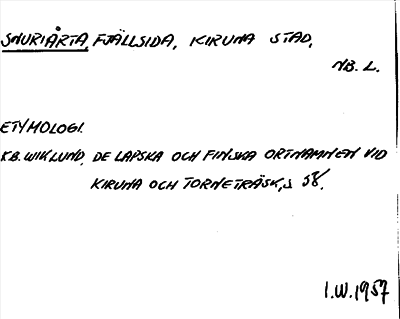 SNURIÅRTA, FJÄLLSIDA, KIRUNA STAD,
NB. L.
ETYMOLOGI.
K.B. WIKLUND, DE LAPSKA OCH FINSKA ORTNAMNEN VID
KIRUNA OCH TORNETRÄSK, S 58.
I.W. 1957